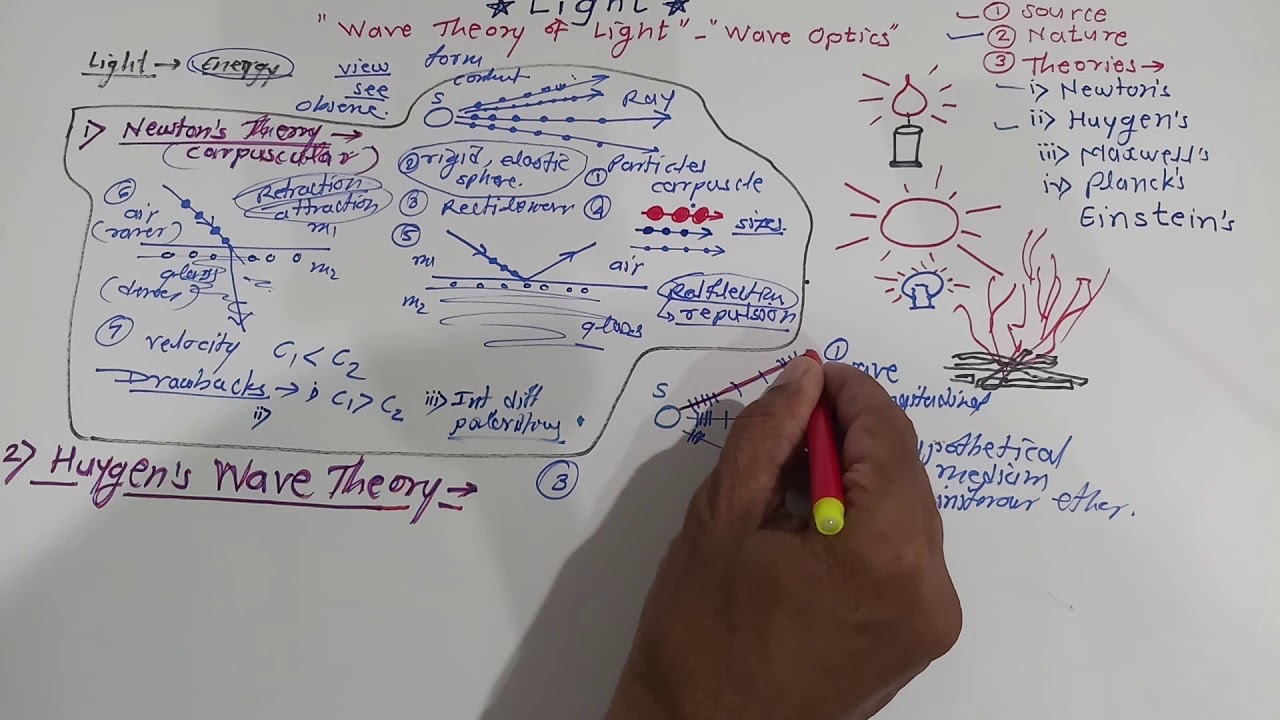 ☆ Light ☆
"Wave Theory of Light" - "Wave Optics"
① Source
② Nature
③ Theories →
i> Newton's
ii> Huygen's
iii> Maxwell's
iv> Planck's
Einstein's
Light → Energy
view
see
observe.
form
content
S
Ray
1> Newton's Theory →
(corpuscular)
② rigid, elastic
sphere.
① Particles
corpuscle
③ Rectilinear
④
sizes.
⑥
air
(rarer)
Refraction
attraction
m1
m2
glass
(denser)
⑤
m1
air
m2
glass
Reflection
↳ repulsion
⑦ velocity C1 < C2
Drawbacks → i> C1 > C2
ii>
iii> Int diff
polarition
S
①
2> Huygen's Wave Theory →
③
medium
ether.